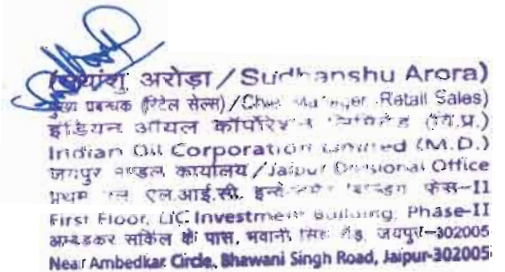 (सुधांशु अरोड़ा / Sudhanshu Arora)
मुख्य प्रबन्धक (रिटेल सेल्स) / Chief Manager (Retail Sales)
इंडियन ऑयल कॉर्पोरेशन लिमिटेड (वि.प्र.)
Indian Oil Corporation Limited (M.D.)
जयपुर मण्डल कार्यालय / Jaipur Divisional Office
प्रथम तल एल.आई.सी. इन्वेस्टमेंट बिल्डिंग फेस-II
First Floor, LIC Investment Building, Phase-II
अम्बेडकर सर्किल के पास, भवानी सिंह रोड, जयपुर-302005
Near Ambedkar Circle, Bhawani Singh Road, Jaipur-302005